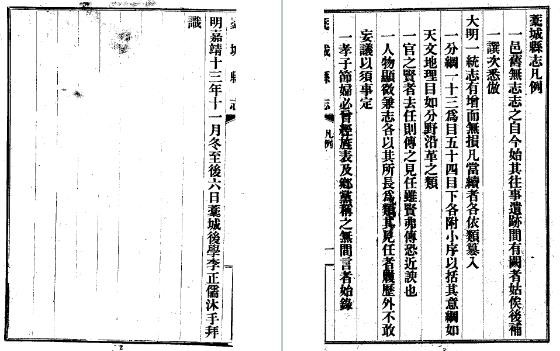 藁城縣志凡例
一邑舊無志志之自今始其往事遺跡間有闕者姑俟後補
一譔次悉倣
大明一統志有增而無損凡當續者各依類纂入
一分綱一十三爲目五十四目下各附小序以括其意綱如
天文地理目如分野沿革之類
一官之賢者去任則傳之見任雖賢弗傳恐近諛也
一人物顯微兼志各以其所長爲類其見任者履歷外不敢
妄議以須事定
一孝子節婦必曾經旌表及鄉黨稱之無間言者始錄
藁城縣志
凡例
一
藁城縣志
明嘉靖十三年十一月冬至後六日藁城後學李正儒沐手拜
識